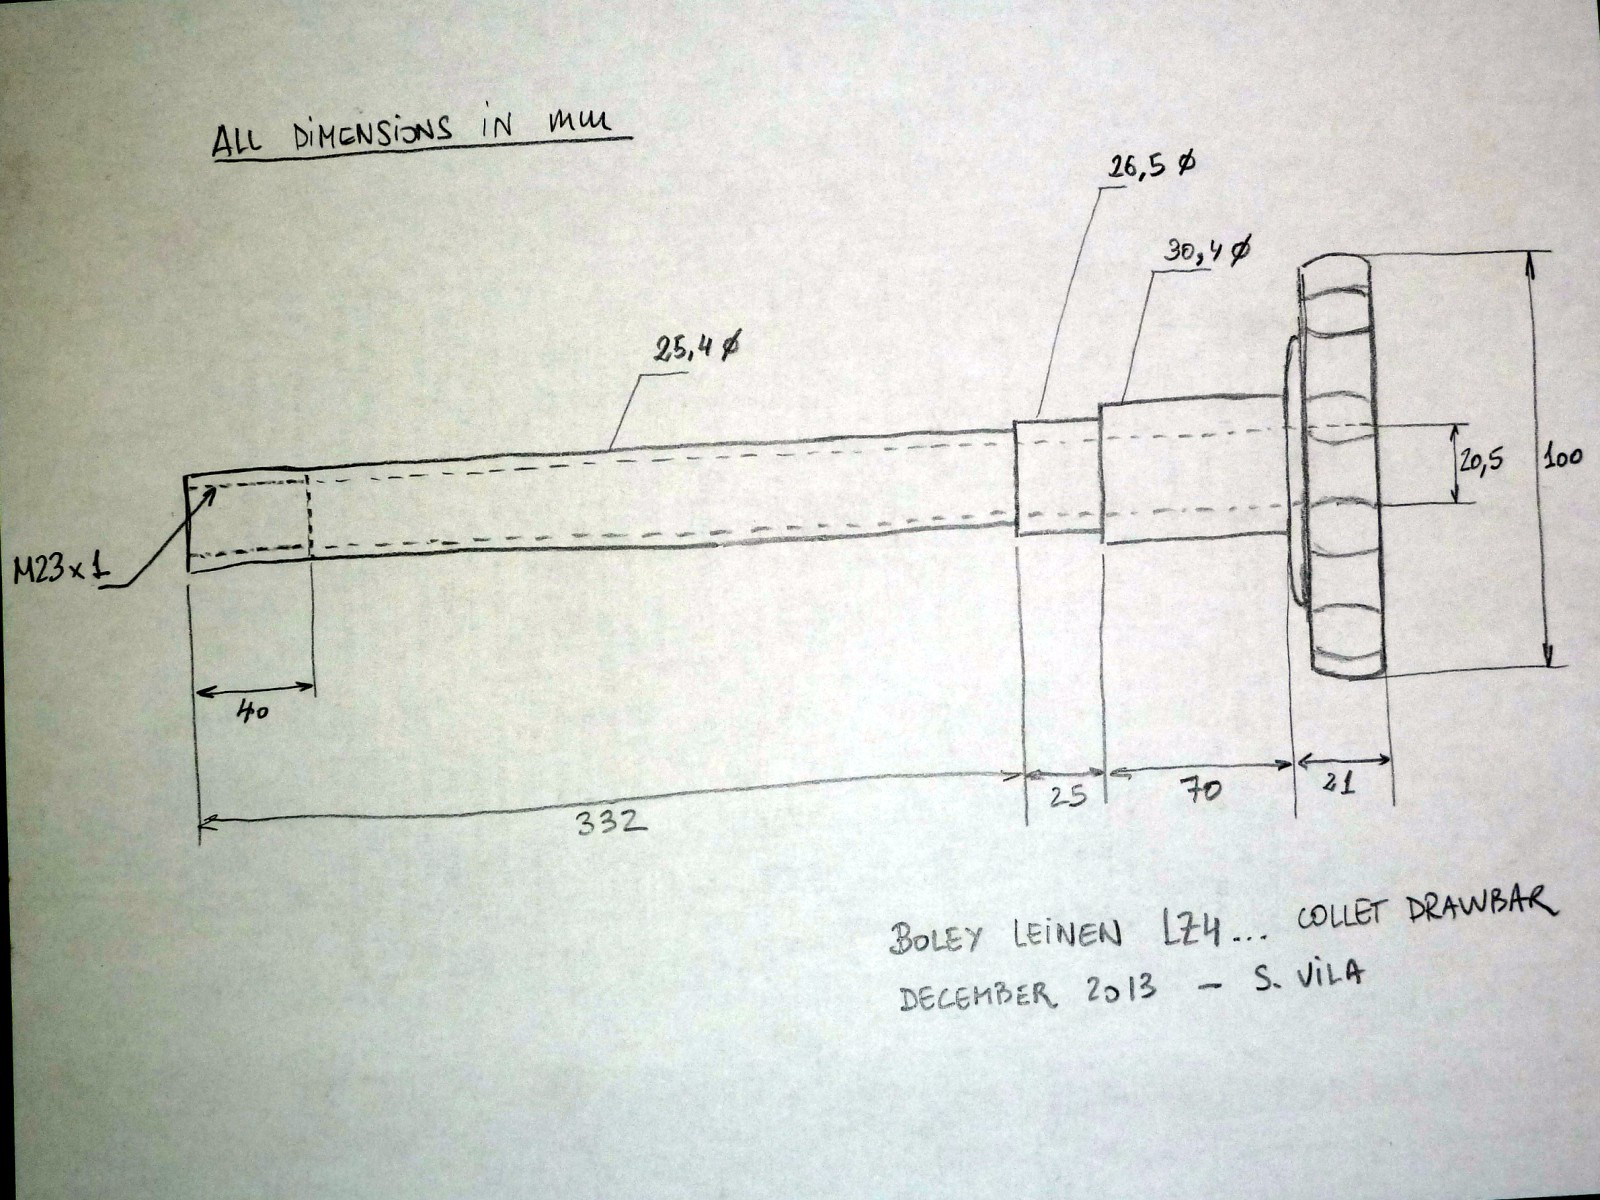 ALL DiMENSiONS iN mm
26,5 ø
30,4 ø
25,4 ø
20,5
100
M23x1
40
332
25
70
21
BOLEY LEiNEN LZ4... COLLET DRAWBAR
DECEMBER 2013 – S. ViLA